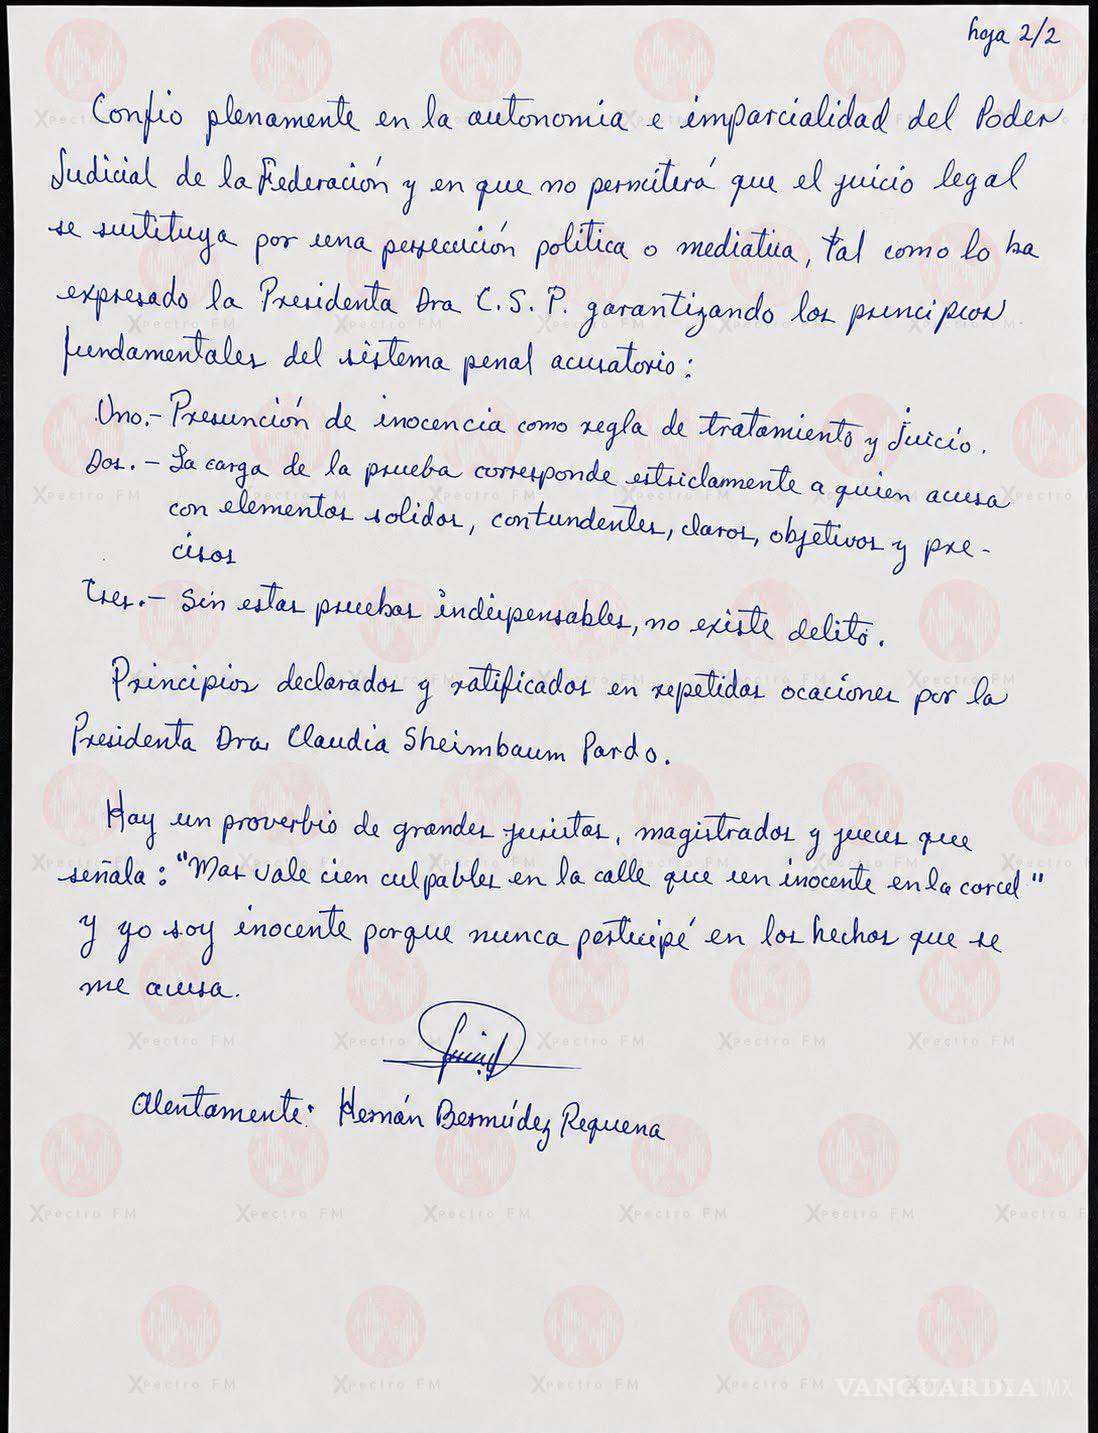 hoja 2/2
Confio plenamente en la autonomía e imparcialidad del Poder
Judicial de la Federación y en que no permiterá que el juicio legal
se sustituya por una persecución política o mediática, tal como lo ha
expresado la Presidenta Dra C. S. P. garantizando los principios
fundamentales del sistema penal acusatorio:
Uno.- Presunción de inocencia como regla de tratamiento y juicio.
Dos.- La carga de la prueba corresponde estrictamente a quien acusa
con elementos solidos, contundentes, claros, objetivos y pre-
cisos
Tres.- Sin estas pruebas indispensables, no existe delito.
Principios declarados y ratificados en repetidas ocaciones por la
Presidenta Dra Claudia Sheimbaum Pardo.
Hay un proverbio de grandes juristas, magistrados y jueces que
señala: "Mas vale cien culpables en la calle que un inocente en la carcel"
y yo soy inocente porque nunca participé en los hechos que se
me acusa.
Atentamente: Hernán Bermúdez Requena
Xpectro FM
VANGUARDIA MX